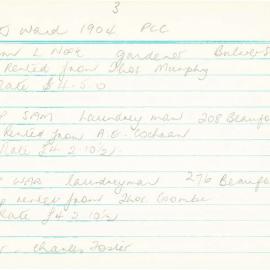 3
Ward 1904 PCC
L Noy gardener Bulwer S
Rented from Thos Murphy
Rate £4-5-0
SAM Laundry man 208 Beaufo
Rented from A.E. Cochran
Rate £4 2.10½
WAR laundryman 276 Beaufo
rented from Thos Coombe
Rate £4 2.10½
Charles Foster